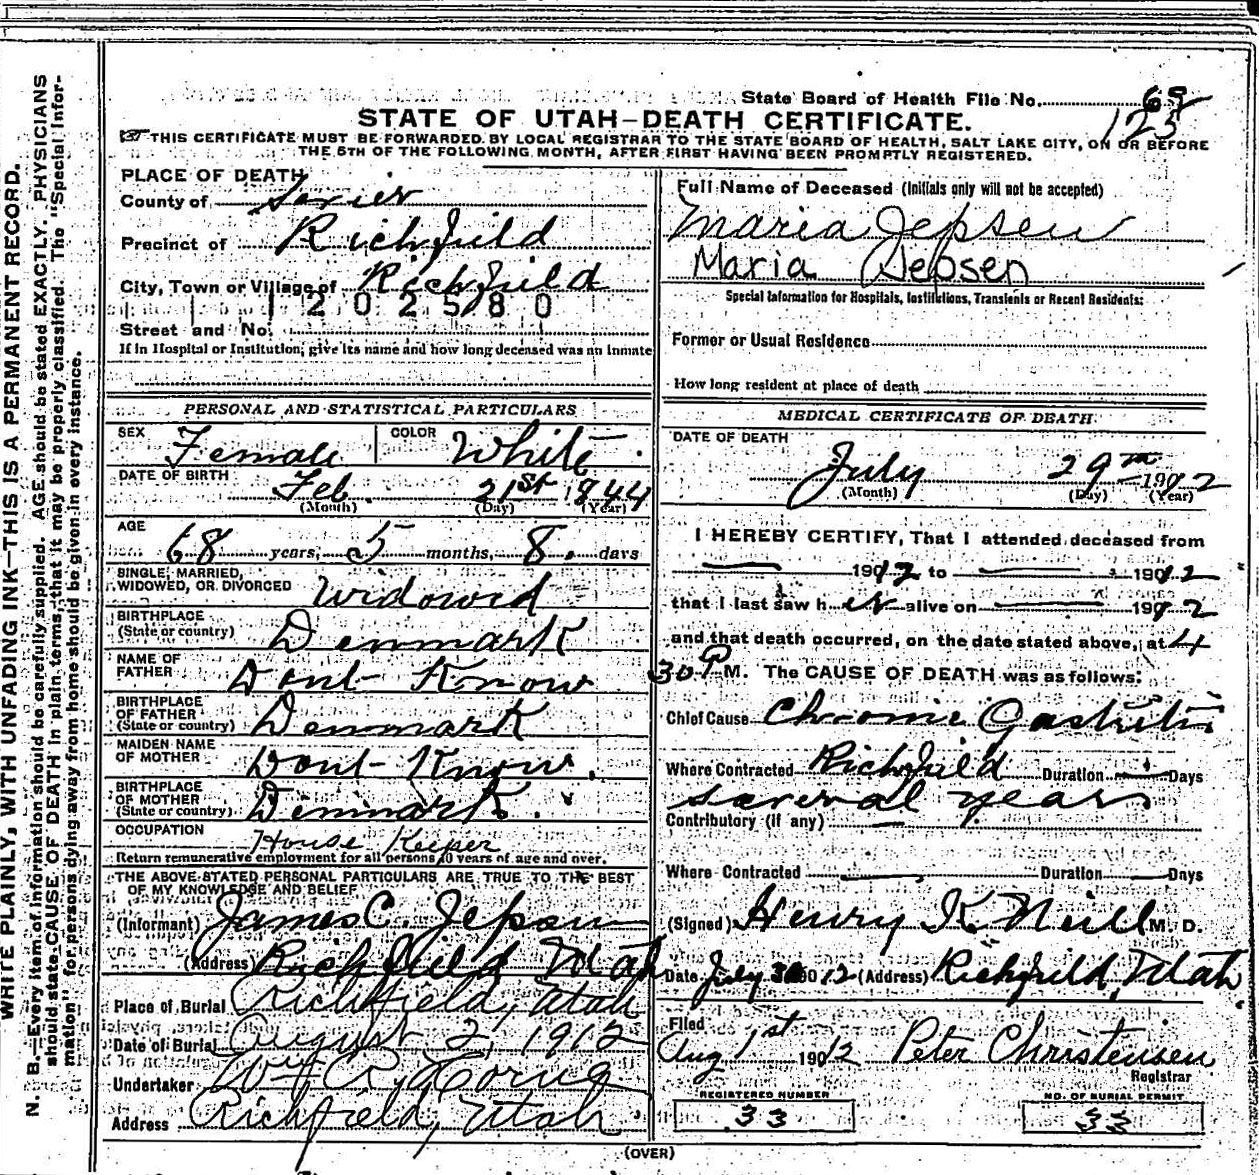 State Board of Health File No. 69
125
STATE OF UTAH—DEATH CERTIFICATE.
THIS CERTIFICATE MUST BE FORWARDED BY LOCAL REGISTRAR TO THE STATE BOARD OF HEALTH, SALT LAKE CITY, ON OR BEFORE
THE 5TH OF THE FOLLOWING MONTH, AFTER FIRST HAVING BEEN PROMPTLY REGISTERED.
WRITE PLAINLY, WITH UNFADING INK—THIS IS A PERMANENT RECORD.
N. B.—Every item of information should be carefully supplied. AGE should be stated EXACTLY. PHYSICIANS
should state CAUSE OF DEATH in plain terms, that it may be properly classified. The "Special Infor-
mation" for persons dying away from home should be given in every instance.
PLACE OF DEATH
County of Sevier
Precinct of Richfield
City, Town or Village of Richfield
202580
Street and No.
If in Hospital or Institution, give its name and how long deceased was an inmate
PERSONAL AND STATISTICAL PARTICULARS
SEX Female COLOR White
DATE OF BIRTH Feb. 21st 1844
(Month) (Day) (Year)
AGE 68 years, 5 months, 8 days
SINGLE, MARRIED,
WIDOWED, OR DIVORCED Widowed
BIRTHPLACE
(State or country) Denmark
NAME OF
FATHER Dont Know
BIRTHPLACE
OF FATHER
(State or country) Denmark
MAIDEN NAME
OF MOTHER Dont Know.
BIRTHPLACE
OF MOTHER
(State or country) Denmark.
OCCUPATION House Keeper
Return remunerative employment for all persons 10 years of age and over.
THE ABOVE STATED PERSONAL PARTICULARS ARE TRUE TO THE BEST
OF MY KNOWLEDGE AND BELIEF
(Informant) James C. Jepsen
(Address) Richfield Utah
Place of Burial Richfield, Utah
Date of Burial August 2, 1912
Undertaker Wm R,
Address Richfield, Utah
Full Name of Deceased (Initials only will not be accepted)
Maria Jepsen
Maria Jepsen
Special Information for Hospitals, Institutions, Transients or Recent Residents:
Former or Usual Residence
How long resident at place of death
MEDICAL CERTIFICATE OF DEATH
DATE OF DEATH
July 29th 1912
(Month) (Day) (Year)
I HEREBY CERTIFY, That I attended deceased from
1912 to 1912
that I last saw her alive on 1912
and that death occurred, on the date stated above, at 4
30 P M. The CAUSE OF DEATH was as follows:
Chief Cause Chronic Gastritis
Where Contracted Richfield Duration — Days
several years
Contributory (if any) —
Where Contracted Duration — Days
(Signed) Henry K Neill M. D.
Date July 30 1912 (Address) Richfield, Utah
Filed
Aug 1st 1912 Peter Christensen
Registrar
REGISTERED NUMBER
33
NO. OF BURIAL PERMIT
33
(OVER)